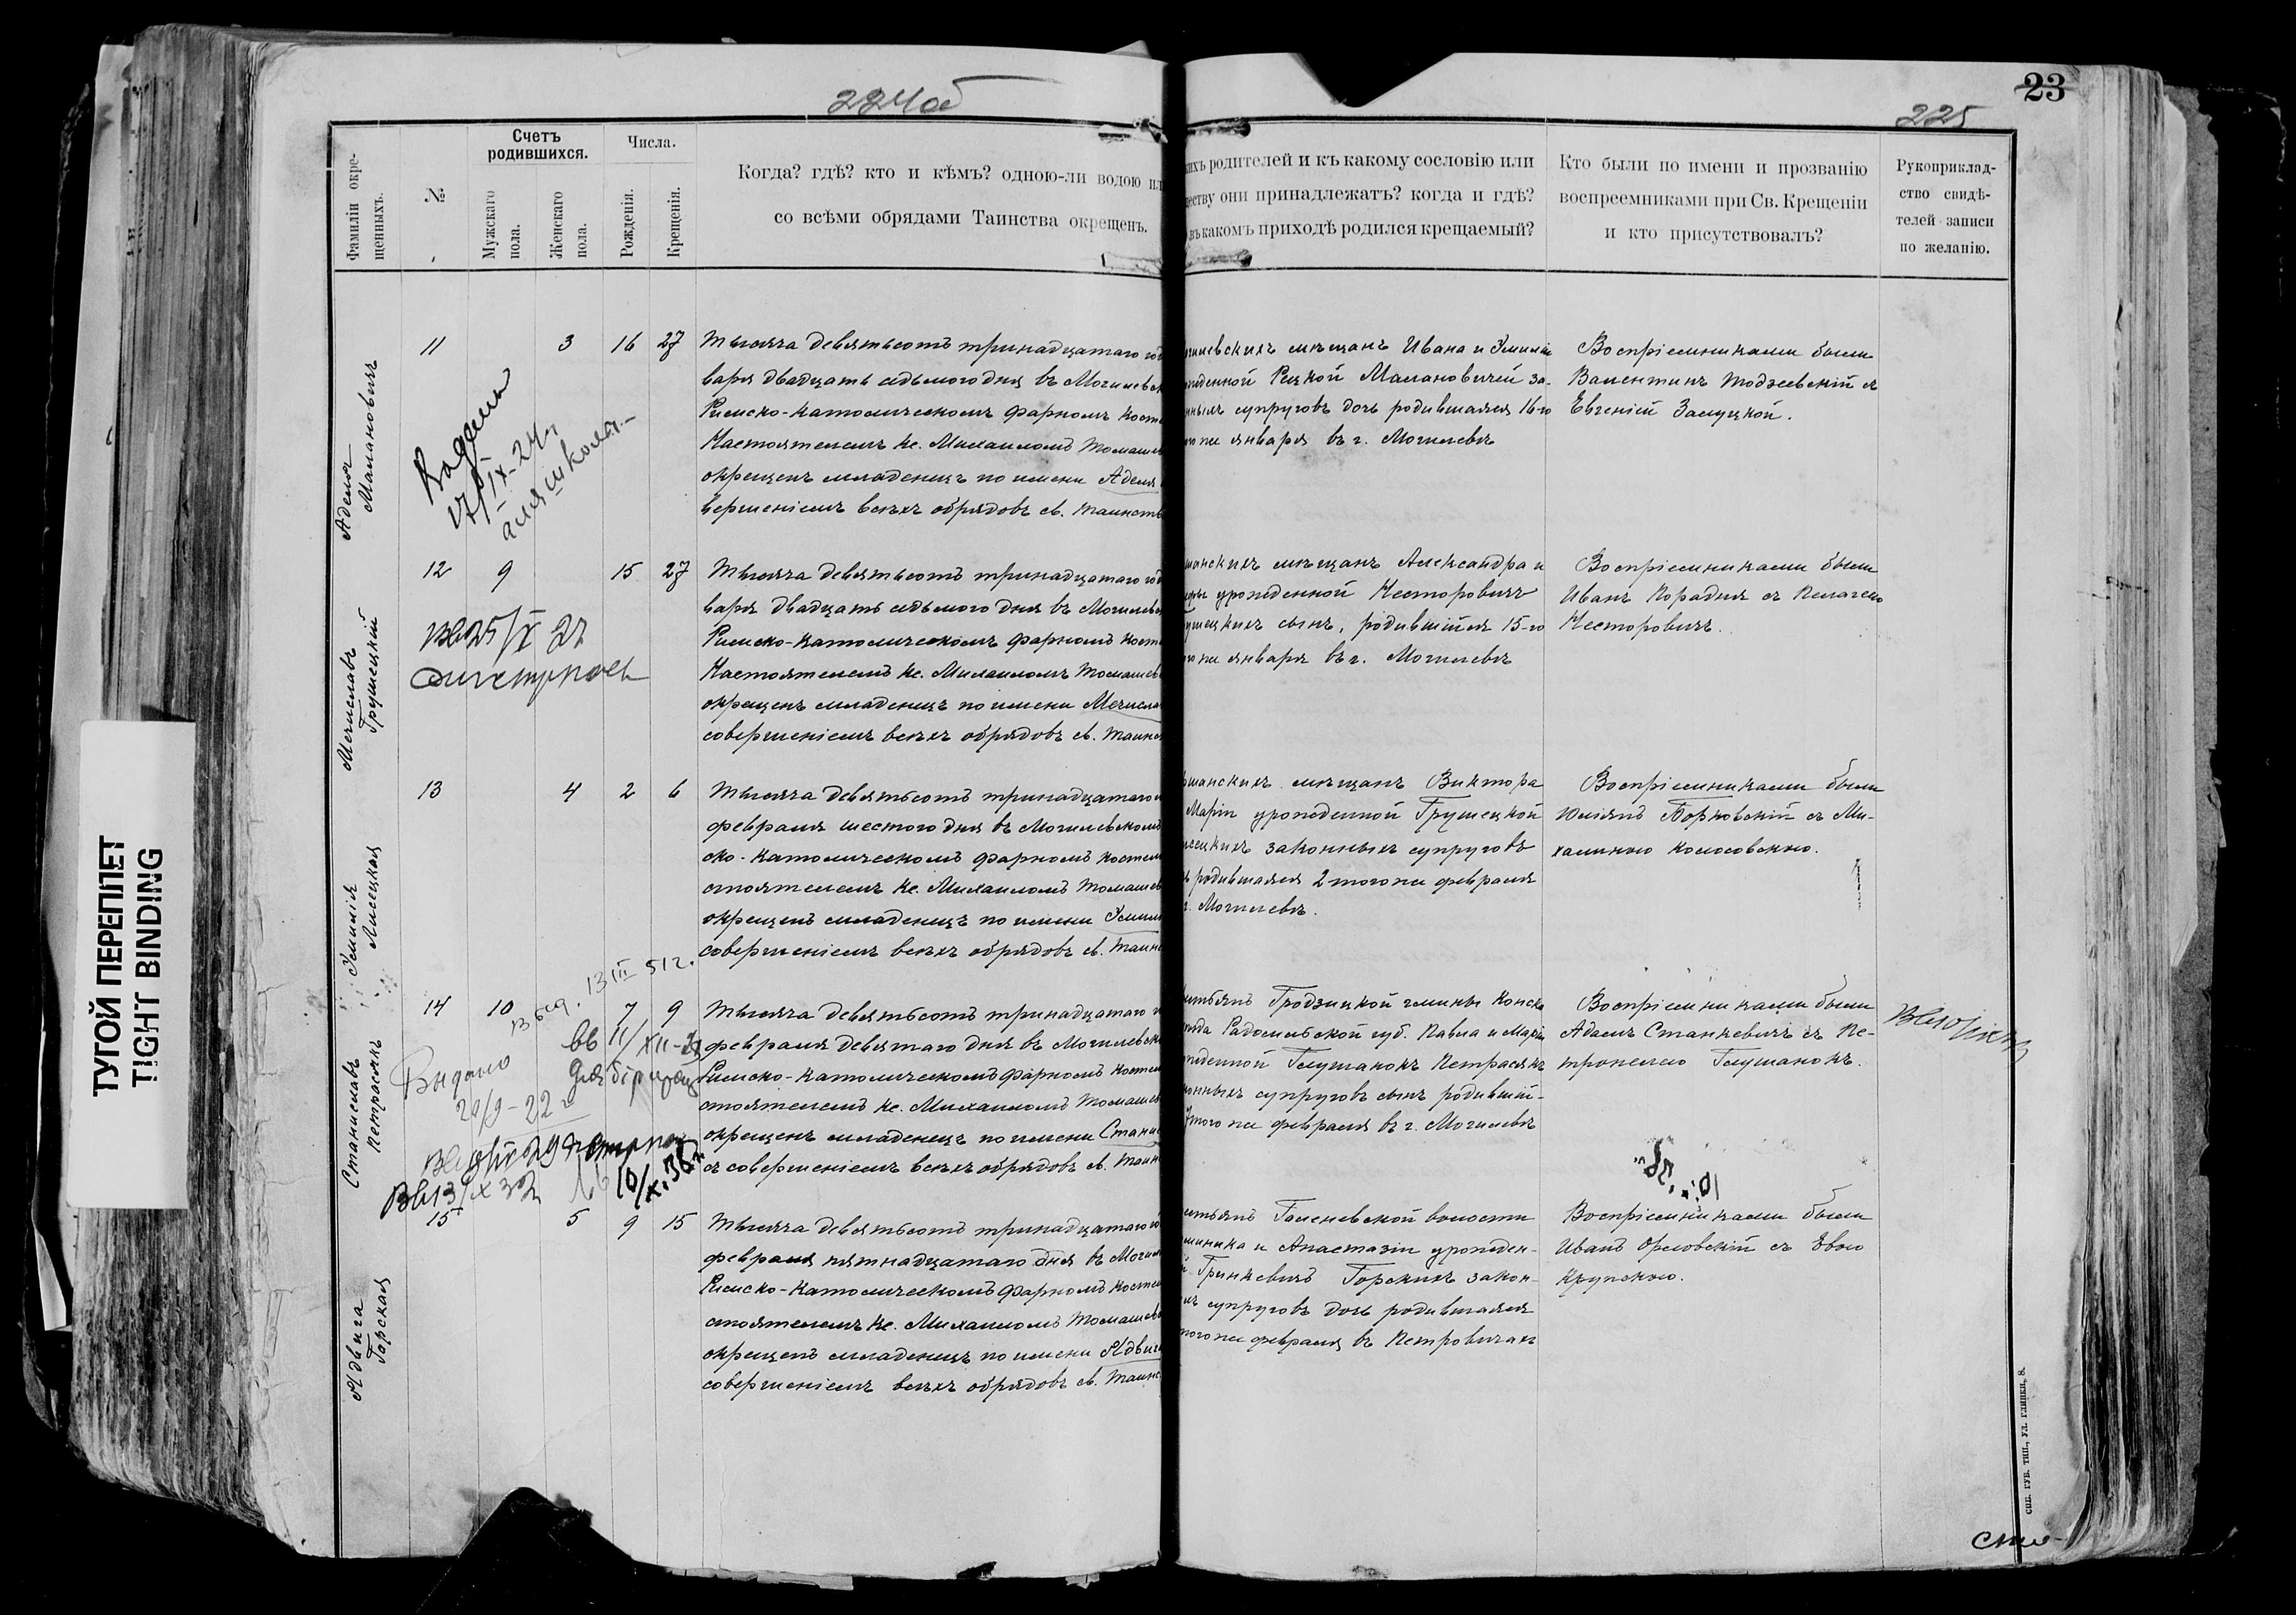 224об
23
225
ТУГОЙ ПЕРЕПЛЕТ
TIGHT BINDING
Фамиліи окре-
щенныхъ.
№
Счетъ
родившихся.
Мужскаго
пола.
Женскаго
пола.
Числа.
Рожденія.
Крещенія.
Когда? гдѣ? кто и кѣмъ? одною-ли водою ил
со всѣми обрядами Таинства окрещенъ.
кихъ родителей и къ какому сословію или
ществу они принадлежатъ? когда и гдѣ?
въ какомъ приходѣ родился крещаемый?
Кто были по имени и прозванію
воспреемниками при Св. Крещеніи
и кто присутствовалъ?
Рукоприклад-
ство свидѣ-
телей записи
по желанію.
Аделя
Малановичъ
11
3
16
27
Тысяча девятьсотъ тринадцатаго год
варя двадцать седьмого дня въ Могилевск
Римско-католическомъ фарномъ косте
Настоятелемъ Кс. Михаиломъ Томашев
окрещенъ младенецъ по имени Аделя
вершеніемъ всѣхъ обрядовъ св. таинств
гилевскихъ мѣщанъ Ивана и Эмиліи
жденной Рецкой Малановичей за-
нныхъ супруговъ дочь родившаяся 16-го
го же января въ г. Могилевѣ
Воспріемниками были
Валентинъ Тодзевскій съ
Евгеніей Залуцкой.
Мечиславъ
Грушецкій
12
9
15
27
Вв 25/X 27
Тысяча девятьсотъ тринадцатаго год
варя двадцать седьмого дня въ Могилевск
Римско-католическомъ фарномъ косте
Настоятелемъ Кс. Михаиломъ Томашев
окрещенъ младенецъ по имени Мечисла
совершеніемъ всѣхъ обрядовъ св. таинс
шанскихъ мѣщанъ Александра и
урожденной Несторовичъ
ушецкихъ сынъ, родившійся 15-го
го же января въ г. Могилевѣ
Воспріемниками были
Иванъ Корадня съ Пелагею
Несторовичъ.
Эмилія
Лисецкая
13
4
2
6
Тысяча девятьсотъ тринадцатаго
февраля шестого дня въ Могилевскомъ
ско-католическомъ фарномъ костел
стоятелемъ Кс. Михаиломъ Томашев
окрещенъ младенецъ по имени Эмили
совершеніемъ всѣхъ обрядовъ св. таинс
шанскихъ мѣщанъ Виктора
Маріи урожденной Грушецкой
исецкихъ законныхъ супруговъ
ь родившаяся 2 того же февраля
г. Могилевѣ.
Воспріемниками были
Юліянъ Борковскій съ Ми-
халиною Колосовскою.
Станиславъ
Петрасякъ
14
10
7
9
13 III 51 г.
Выдано
20/9-22 г
Тысяча девятьсотъ тринадцатаго
февраля девятаго дня въ Могилевск
Римско-католическомъ фарномъ костел
стоятелемъ Кс. Михаиломъ Томашев
окрещенъ младенецъ по имени Стани
съ совершеніемъ всѣхъ обрядовъ св. таин
стьянъ Гродзицкой гмины Конска
зда Радомльской губ. Павла и Маріи
жденной Глушанокъ Петрасякъ
онныхъ супруговъ сынъ родившій-
7 того же февраля въ г. Могилевѣ
Воспріемниками были
Адамъ Станкевичъ съ Пе-
тронелею Глушанокъ.
Вв 13/X 32
10/X.38г
Ядвига
Горская
15
5
9
15
Тысяча девятьсотъ тринадцатаго го
февраля пятнадцатаго дня въ Могил
Римско-католическомъ фарномъ костел
стоятелемъ Кс. Михаиломъ Томашев
окрещенъ младенецъ по имени Ядвиг
совершеніемъ всѣхъ обрядовъ св. таинс
стьянъ Голеневской волости
миника и Анастазіи урожден-
Гринкевичъ Горскихъ закон-
ыхъ супруговъ дочь родившаяся
того же февраля въ Петровичахъ
Воспріемниками были
Иванъ Орловскій съ Евою
Крупскою.
СПБ. ГУБ. ТИП., УЛ. ГЛИНКИ, 8.